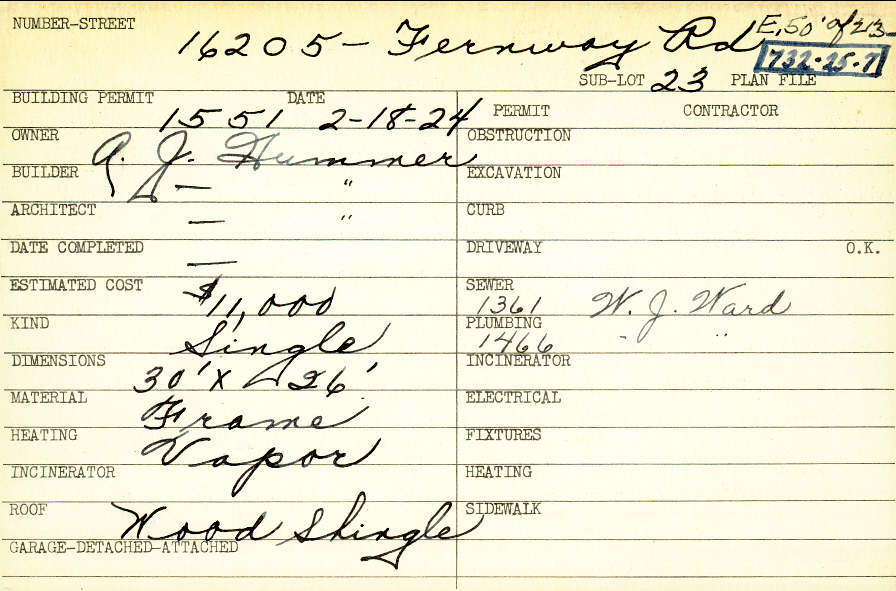 NUMBER-STREET 16205 - Fernway Rd E, 50' of 23
SUB-LOT 23 PLAN FILE 732-25-7
BUILDING PERMIT 1551 DATE 2-18-24
PERMIT CONTRACTOR
OWNER A. J. Hummer
OBSTRUCTION
BUILDER — "
EXCAVATION
ARCHITECT — "
CURB
DATE COMPLETED —
DRIVEWAY O.K.
ESTIMATED COST $11,000
SEWER 1361 W. J. Ward
KIND Single
PLUMBING 1466 " "
DIMENSIONS 30' X 26'
INCINERATOR
MATERIAL Frame
ELECTRICAL
HEATING Vapor
FIXTURES
INCINERATOR
HEATING
ROOF Wood Shingle
SIDEWALK
GARAGE-DETACHED-ATTACHED